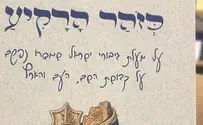 כזהר הרקיע
על מעלת גיבורי ישראל שמסרו נפשם
על קדושת השם, העם והארץ